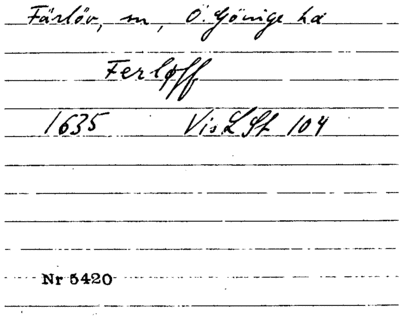 Färlöv, sn, Ö. Göinge hd
Ferløff
1635 Vis L St 104
Nr 5420